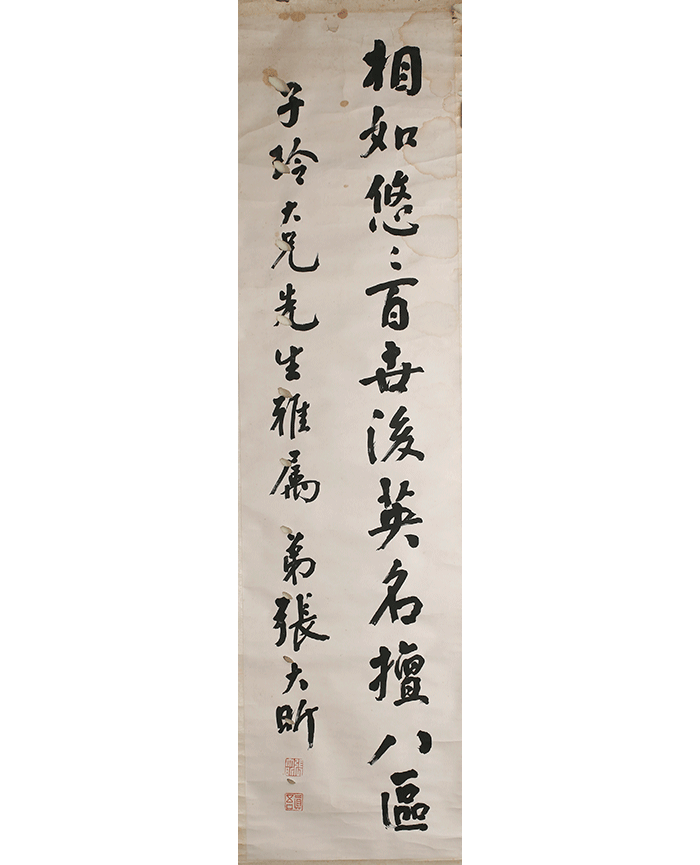 相如悠〻百世後英名擅八區
子玲大兄先生雅属 弟張大昕